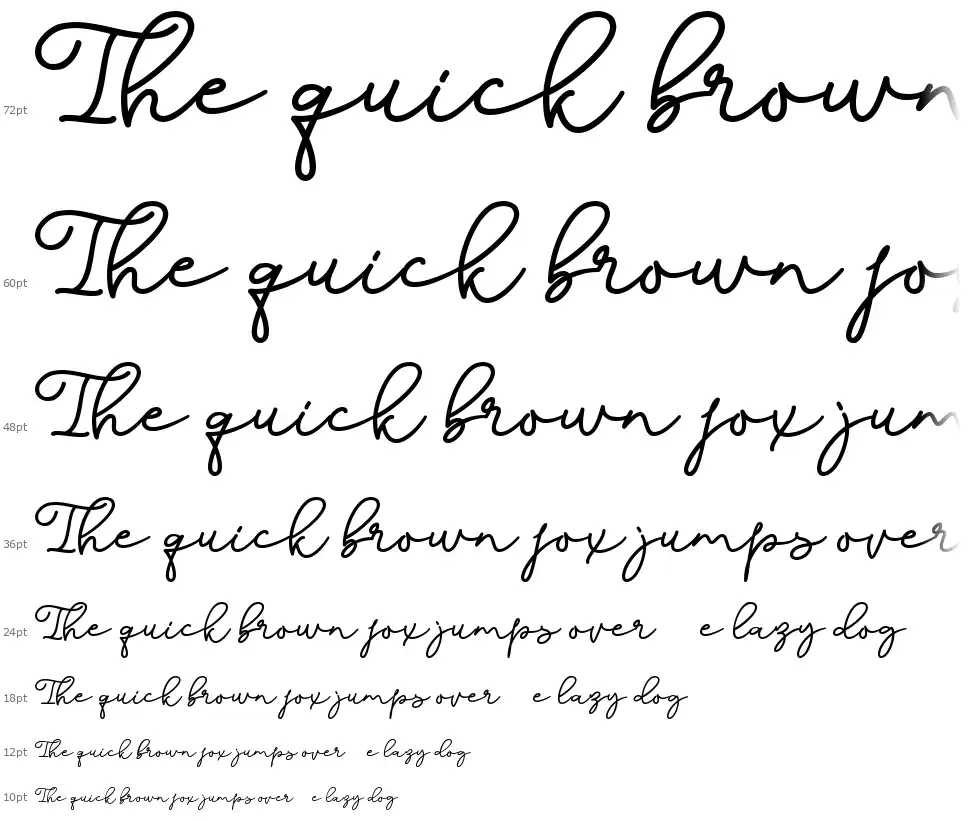 72pt The quick brown
60pt The quick brown fo
48pt The quick brown fox jum
36pt The quick brown fox jumps over
24pt The quick brown fox jumps over e lazy dog
18pt The quick brown fox jumps over e lazy dog
12pt The quick brown fox jumps over e lazy dog
10pt The quick brown fox jumps over e lazy dog